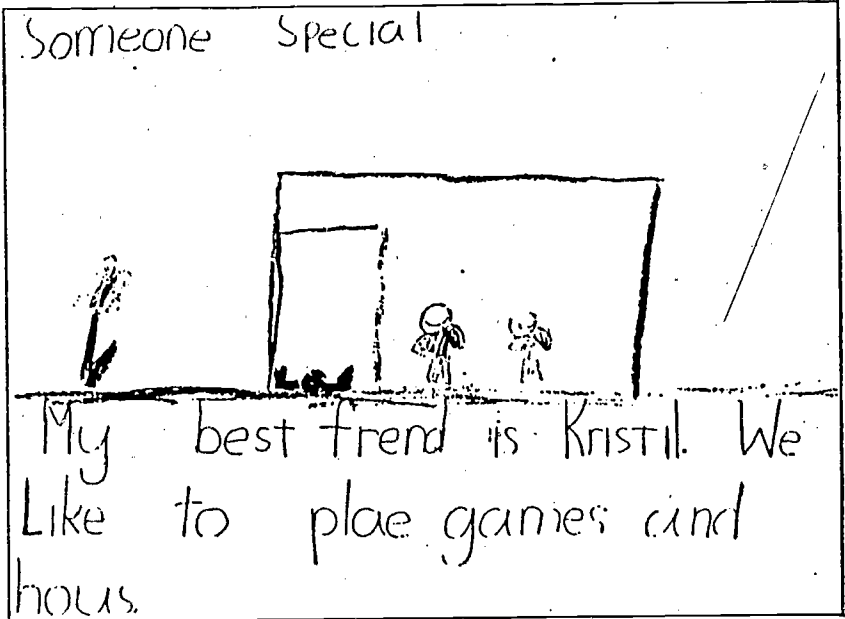 Someone Special
My best frend is Kristil. We
Like to plae games and
hous.